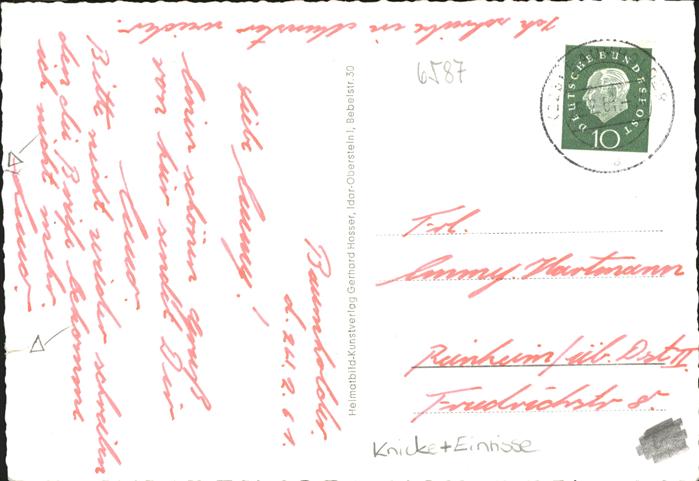 Baumholder
d. 24.2.61.
Liebe Emmy!
Einen schönen Gruß
von hier sendet Dir
Bitte nicht wieder schreiben
den die Briefe bekomme
ich nicht mehr.
Ich schreibe in Münster wieder.
Heimatbild-Kunstverlag Gerhard Hosser, Idar-Oberstein 1, Bebelstr. 30
6587
DEUTSCHE BUNDESPOST
10
Frl.
Emmy. Hartmann
Reinheim/üb. Dst II
Friedrichstr 8.
Knicke+Einrisse